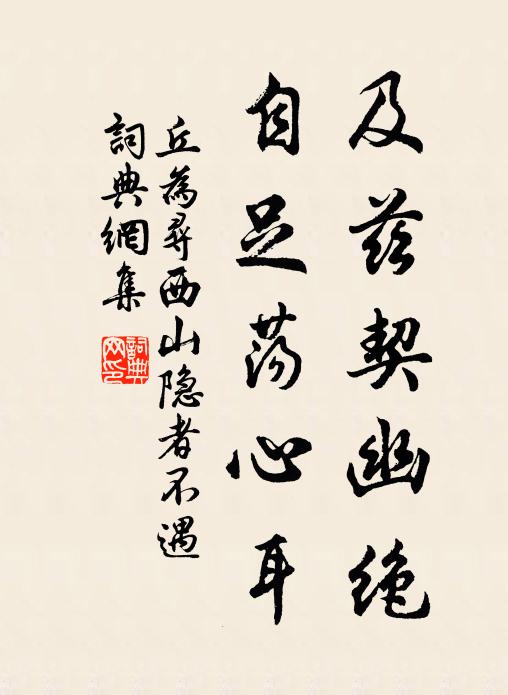 及茲契幽绝
自足荡心耳
丘為尋西山隐者不遇
詞典網集
詞典网印